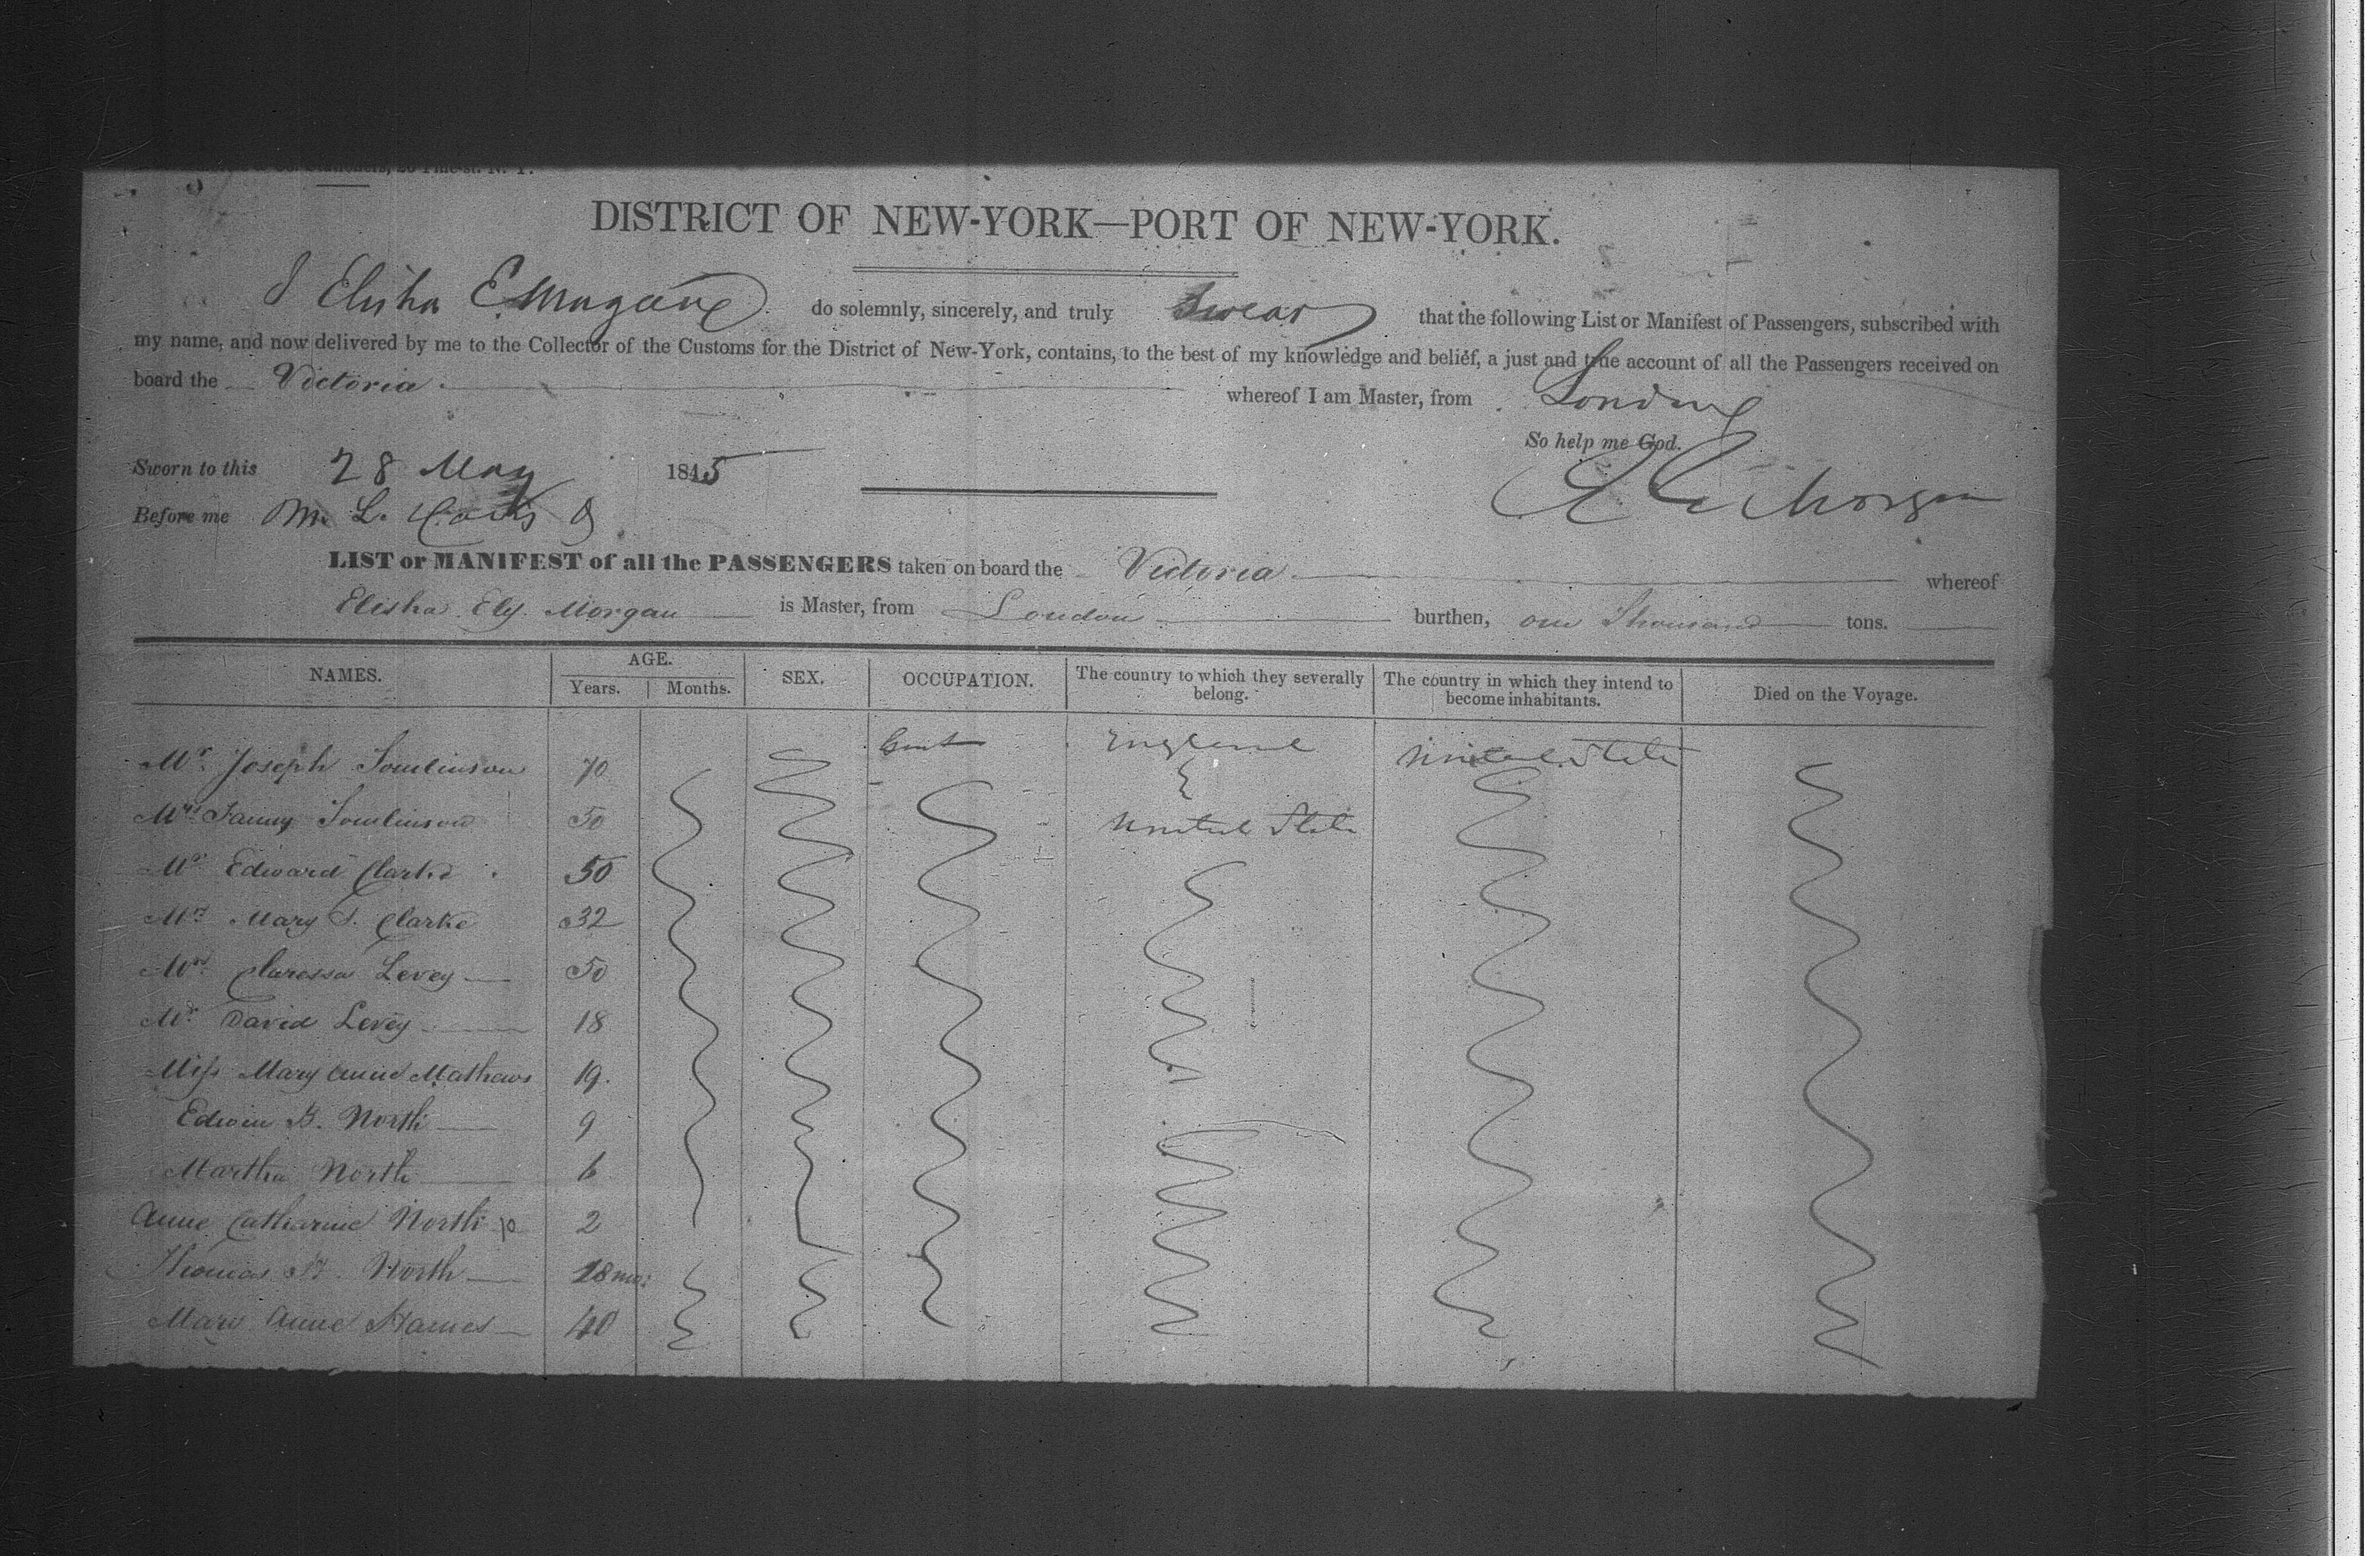 Stationers, 20 Pine-st. N. Y.
DISTRICT OF NEW-YORK—PORT OF NEW-YORK.
I Elisha E. Morgan do solemnly, sincerely, and truly Swear that the following List or Manifest of Passengers, subscribed with
my name, and now delivered by me to the Collector of the Customs for the District of New-York, contains, to the best of my knowledge and belief, a just and true account of all the Passengers received on
board the Victoria whereof I am Master, from London
So help me God.
Sworn to this 28 May 1845
E E Morgan
Before me M. L.
LIST or MANIFEST of all the PASSENGERS taken on board the Victoria whereof
Elisha Ely Morgan is Master, from London burthen, one Thousand tons.
NAMES. AGE. Years. Months. SEX. OCCUPATION. The country to which they severally belong. The country in which they intend to become inhabitants. Died on the Voyage.
Mr. Joseph Tomlinson 70 Gent England United States
Mrs Fanny Tomlinson 50 United States
Mr Edward Clarke 50
Mrs Mary S. Clarke 32
Mrs. Claressa Levey 50
Mr. David Levey 18
Miss Mary Anne Mathews 19.
Edwin B. North 9
Martha North 6
Anne Catharine North 2
Thomas North 18 mo:
Mary Anne Hames 40